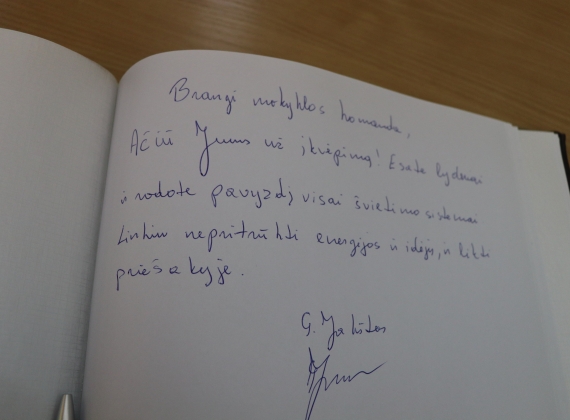 Brangi mokyklos komanda,
Ačiū Jums už įkvėpimą! Esate lyderiai
ir rodote pavyzdį visai švietimo sistemai
Linkiu nepritrūkti energijos ir idėjų, ir likti
priešakyje.
G. Jakštas